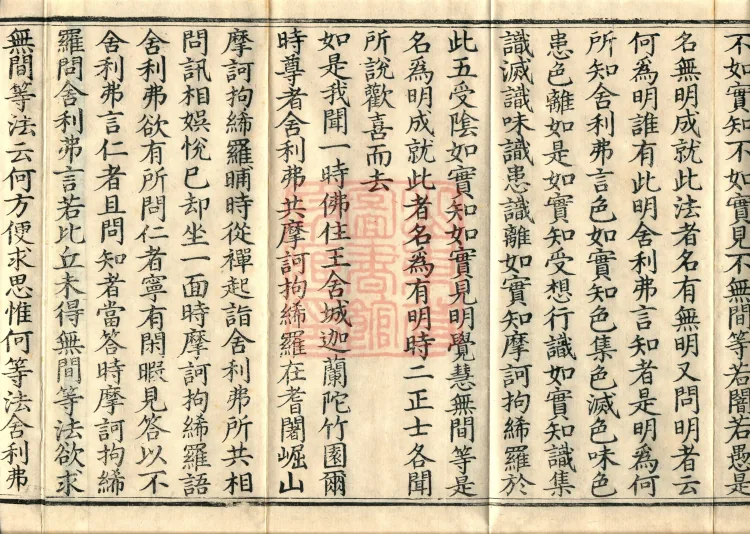 不如實知不如實見不無間等若闇若愚是
名無明成就此法者名有無明又問明者云
何爲明誰有此明舍利弗言知者是明爲何
所知舍利弗言色如實知色集色滅色味色
患色離如是如實知受想行識如實知識集
識滅識味識患識離如實知摩訶拘絺羅於
此五受陰如實知如實見明覺慧無間等是
名爲明成就此者名爲有明時二正士各聞
所說歡喜而去
如是我聞一時佛住王舍城迦蘭陀竹園爾
時尊者舍利弗共摩訶拘絺羅在耆闍崛山
摩訶拘絺羅晡時從禪起詣舍利弗所共相
問訊相娛悅已却坐一面時摩訶拘絺羅語
舍利弗欲有所問仁者寧有閑暇見答以不
舍利弗言仁者且問知者當答時摩訶拘絺
羅問舍利弗言若比丘未得無間等法欲求
無間等法云何方便求思惟何等法舍利弗